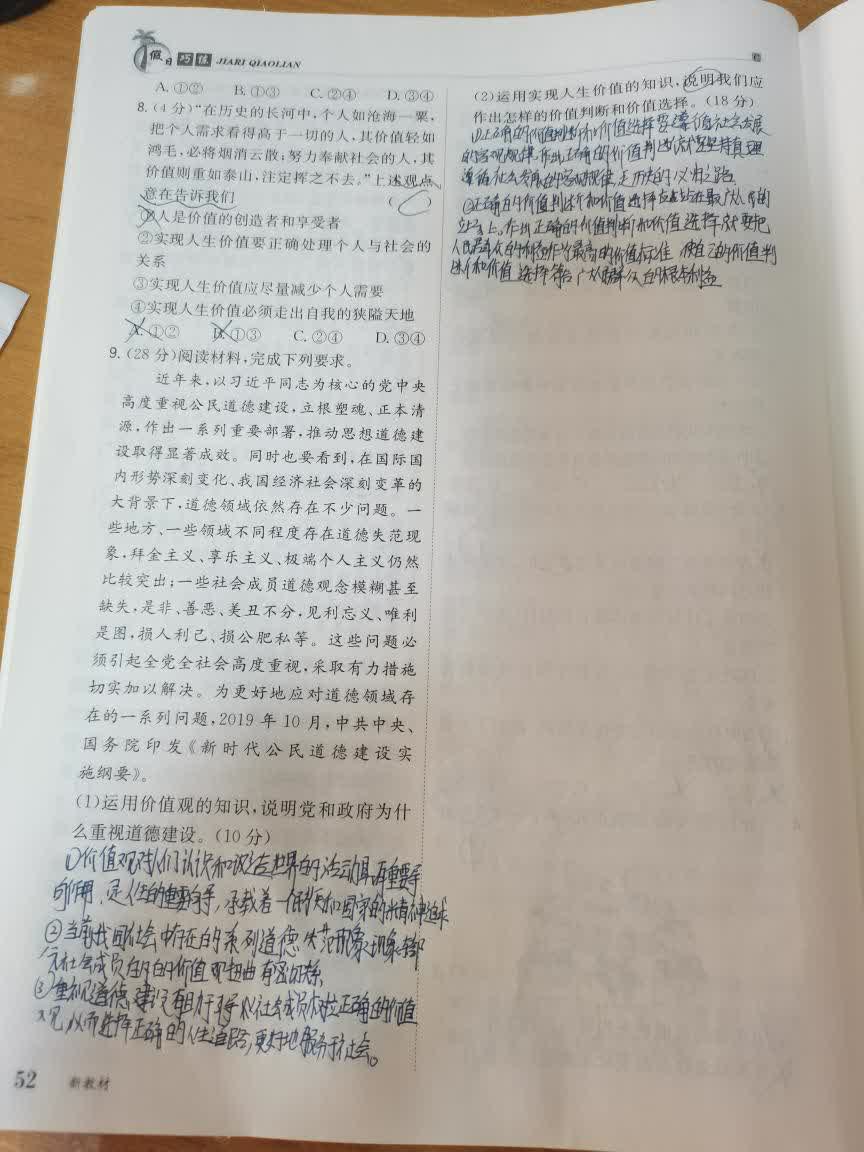 假日巧练 JIARI QIAOLIAN
A. ①② B. ①③ C. ②④ D. ③④
8. (4 分)“在历史的长河中,个人如沧海一粟,
把个人需求看得高于一切的人,其价值轻如
鸿毛,必将烟消云散;努力奉献社会的人,其
价值则重如泰山,注定挥之不去。”上述观点
意在告诉我们 ( C )
①人是价值的创造者和享受者
②实现人生价值要正确处理个人与社会的
关系
③实现人生价值应尽量减少个人需要
④实现人生价值必须走出自我的狭隘天地
A. ①② B. ①③ C. ②④ D. ③④
9. (28 分)阅读材料,完成下列要求。
近年来,以习近平同志为核心的党中央
高度重视公民道德建设,立根塑魂、正本清
源,作出一系列重要部署,推动思想道德建
设取得显著成效。同时也要看到,在国际国
内形势深刻变化、我国经济社会深刻变革的
大背景下,道德领域依然存在不少问题。一
些地方、一些领域不同程度存在道德失范现
象,拜金主义、享乐主义、极端个人主义仍然
比较突出;一些社会成员道德观念模糊甚至
缺失,是非、善恶、美丑不分,见利忘义、唯利
是图,损人利己、损公肥私等。这些问题必
须引起全党全社会高度重视,采取有力措施
切实加以解决。为更好地应对道德领域存
在的一系列问题,2019 年 10 月,中共中央、
国务院印发《新时代公民道德建设实
施纲要》。
(1)运用价值观的知识,说明党和政府为什
么重视道德建设。(10 分)
①价值观对人们认识和改造世界的活动具有重要导
向作用,是人生的重要向导,承载着一个民族和国家的精神追求
②当前我国社会中存在的系列道德失范现象现象都
与社会成员的价值观扭曲有密切关系
③重视道德建设有助于引导社会成员树立正确的价值
观,从而选择正确的人生道路,更好地服务于社会。
52 新教材
(2)运用实现人生价值的知识,说明我们应
作出怎样的价值判断和价值选择。(18 分)
①正确的价值判断和价值选择要遵循社会发展
的客观规律,作出正确的价值判断就得坚持真理
遵循社会发展的客观规律,走历史的必由之路
②正确的价值判断和价值选择应站在最广大人民的
立场上。作出正确的价值判断和价值选择就要把
人民群众的利益作为最高的价值标准,使自己的价值判
断和价值选择符合广大人民群众的根本利益